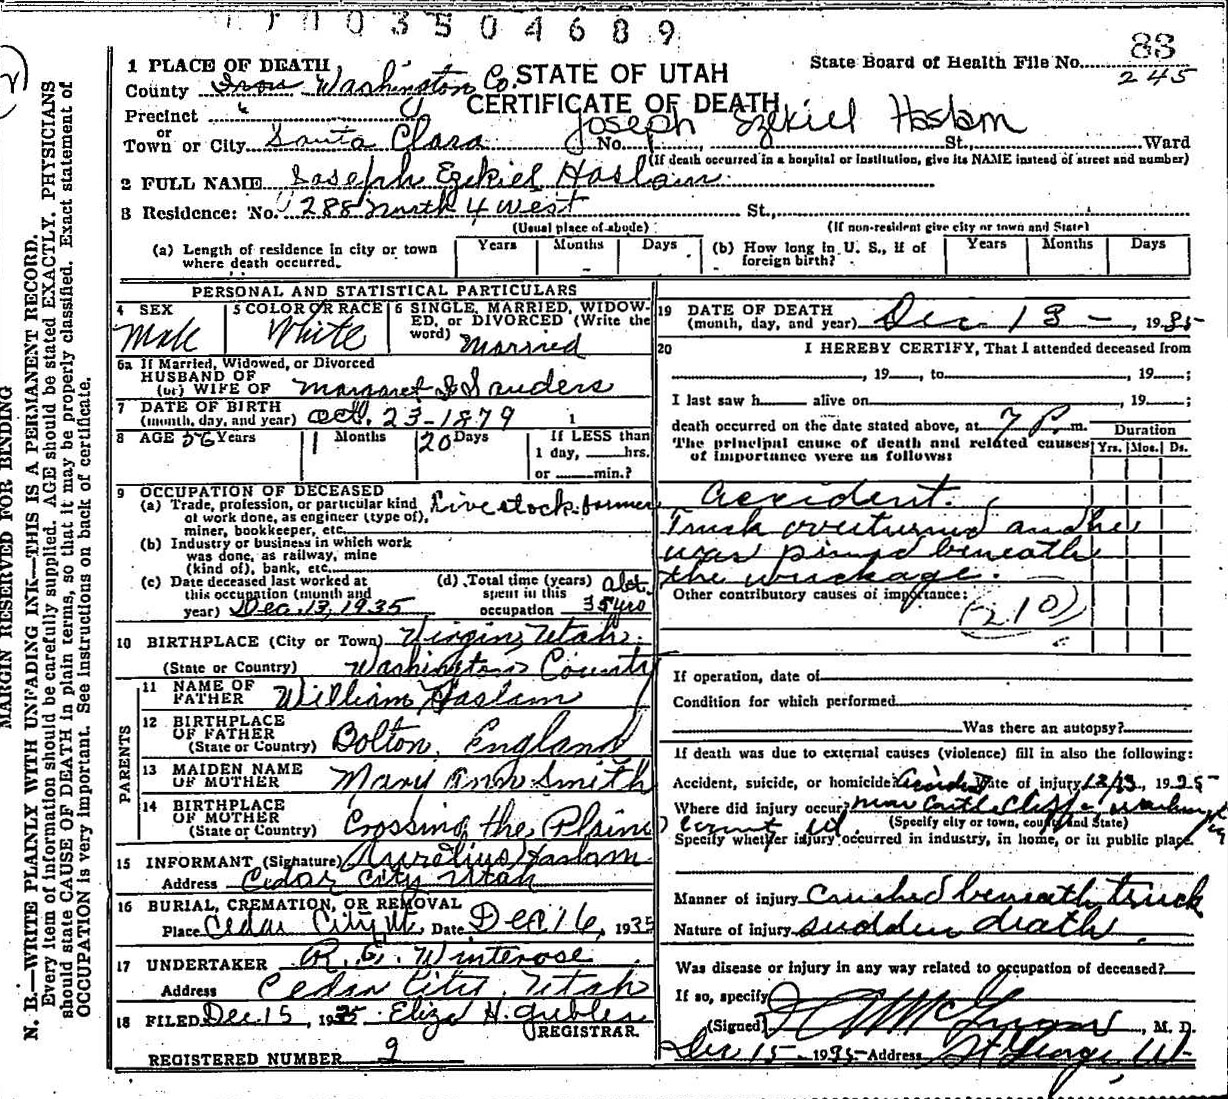 0 3 5 0 4 6 8 9
1 PLACE OF DEATH
STATE OF UTAH
CERTIFICATE OF DEATH
State Board of Health File No. 83
245
County Iron Washington Co.
Precinct
Joseph Ezekiel Haslam
Town or City Santa Clara No. St., Ward
(If death occurred in a hospital or institution, give its NAME instead of street and number)
2 FULL NAME Joseph Ezekiel Haslam
3 Residence: No. 288 North 4 West St.,
(Usual place of abode) (If non-resident give city or town and State)
(a) Length of residence in city or town where death occurred. Years Months Days
(b) How long in U. S., if of foreign birth? Years Months Days
PERSONAL AND STATISTICAL PARTICULARS
4 SEX Male
5 COLOR OR RACE White
6 SINGLE, MARRIED, WIDOWED, or DIVORCED (Write the word) Married
6a If Married, Widowed, or Divorced
HUSBAND OF
(or) WIFE OF Margaret Sanders
7 DATE OF BIRTH
(month, day, and year) Oct. 23-1879 1
8 AGE 56 Years 1 Months 20 Days If LESS than
1 day, hrs.
or min.?
9 OCCUPATION OF DECEASED
(a) Trade, profession, or particular kind of work done, as engineer (type of), miner, bookkeeper, etc. Livestock farmer
(b) Industry or business in which work was done, as railway, mine (kind of), bank, etc.
(c) Date deceased last worked at this occupation (month and year) Dec. 13, 1935
(d) Total time (years) spent in this occupation abt. 35 yrs
10 BIRTHPLACE (City or Town) Virgin, Utah
(State or Country) Washington County
PARENTS
11 NAME OF FATHER William Haslam
12 BIRTHPLACE OF FATHER
(State or Country) Bolton, England
13 MAIDEN NAME OF MOTHER Mary Ann Smith
14 BIRTHPLACE OF MOTHER
(State or Country) Crossing the Plains
15 INFORMANT (Signature) Aurelius Haslam
Address Cedar City Utah
16 BURIAL, CREMATION, OR REMOVAL
Place Cedar City Ut. Date Dec 16, 1935
17 UNDERTAKER Winterose
Address Cedar City, Utah
18 FILED Dec. 15, 1935 Eliza H.
REGISTRAR.
REGISTERED NUMBER 2
19 DATE OF DEATH
(month, day, and year) Dec 13 - , 1935
20 I HEREBY CERTIFY, That I attended deceased from
, 19 , to , 19 ;
I last saw h alive on , 19 ;
death occurred on the date stated above, at 7 P. m.
The principal cause of death and related causes of importance were as follows:
Duration
Yrs. Mos. Ds.
Accident.
Truck overturned and he
was pined beneath
the wreckage.
Other contributory causes of importance:
(210)
If operation, date of
Condition for which performed
Was there an autopsy?
If death was due to external causes (violence) fill in also the following:
Accident, suicide, or homicide? Accident Date of injury 12/13, 1935
Where did injury occur? near Castle Cliff, Washington
County Ut.
(Specify city or town, county and State)
Specify whether injury occurred in industry, in home, or in public place.
Manner of injury Crushed beneath truck
Nature of injury sudden death.
Was disease or injury in any way related to occupation of deceased?
If so, specify
(Signed) , M. D.
Dec 15- 1935- Address St George, Ut-
MARGIN RESERVED FOR BENDING
N. B.—WRITE PLAINLY WITH UNFADING INK—THIS IS A PERMANENT RECORD.
Every item of information should be carefully supplied. AGE should be stated EXACTLY. PHYSICIANS
should state CAUSE OF DEATH in plain terms, so that it may be properly classified. Exact statement of
OCCUPATION is very important. See instructions on back of certificate.